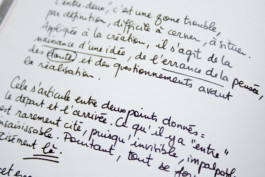 entre-deux, c'est une zone trouble,
par définition, difficile à cerner, à situer.
Appliquée à la création, il s'agit de la
naissance d'une idée, de l'errance de la pensée,
des doutes et des questionnements avant
la réalisation.
Cela s'articule entre deux points donnés :
le départ et l'arrivée. Ce qu'il y a "entre"
est rarement cité, puisqu'invisible, impalpable,
Pourtant, tout se
là.